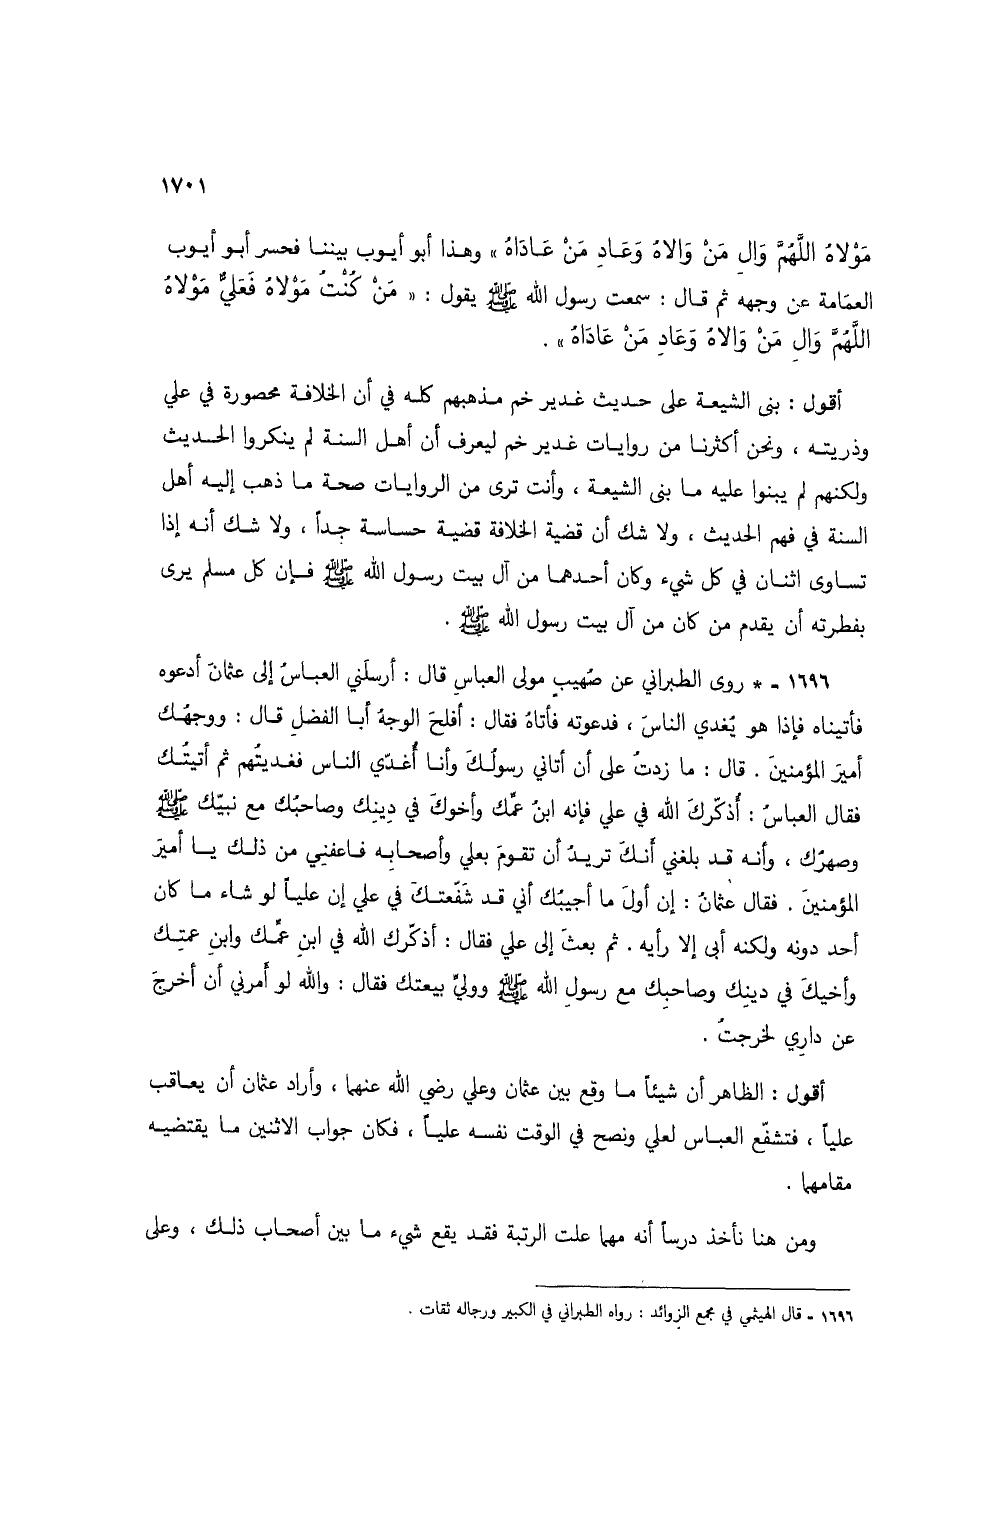 ١٧٠١
مَوْلاهُ اللَّهُمَّ وَالِ مَنْ وَالاهُ وَعَادِ مَنْ عَادَاهُ » وهذا أبو أيوب بيننا فحسر أبو أيوب
العمَامة عن وجهه ثم قال : سمعت رسول الله ﷺ يقول : « مَنْ كُنْتُ مَوْلاهُ فَعَلِيٌّ مَوْلاهُ
اللَّهُمَّ وَالِ مَنْ وَالاهُ وَعَادِ مَنْ عَادَاهُ » .
أقول : بنى الشيعة على حديث غدير خم مذهبهم كله في أن الخلافة محصورة في علي
وذريته ، ونحن أكثرنا من روايات غدير خم ليعرف أن أهل السنة لم ينكروا الحديث
ولكنهم لم يبنوا عليه ما بنى الشيعة ، وأنت ترى من الروايات صحة ما ذهب إليه أهل
السنة في فهم الحديث ، ولا شك أن قضية الخلافة قضية حساسة جداً ، ولا شك أنه إذا
تساوى اثنان في كل شيء وكان أحدهما من آل بيت رسول الله ﷺ فإن كل مسلم يرى
بفطرته أن يقدم من كان من آل بيت رسول الله ﷺ .
١٦٩٦ - * روى الطبراني عن صُهيبٍ مولى العباسِ قال : أرسلَني العباسُ إلى عثمانَ أدعوه
فأتيناه فإذا هو يُغدي الناسَ ، فدعوته فأتاهُ فقال : أفلحَ الوجهُ أبا الفضلِ قال : ووجهُك
أميرَ المؤمنينَ . قال : ما زدتُ على أن أتاني رسولُكَ وأنا أُغدّي الناس فغديتُهم ثم أتيتُك
فقال العباسُ : أُذكّركَ الله في علي فإنه ابنُ عمِّك وأخوكَ في دِينِك وصاحبُك مع نبيّك ﷺ
وصهرُك ، وأنه قد بلغني أَنكَ تريدُ أن تقومَ بعلي وأصحابِه فاعفنِي من ذلك يا أميرَ
المؤمنينَ . فقال عثمانُ : إن أولَ ما أجيبُك أني قد شَفّعتكَ في علي إن علياً لو شاء ما كان
أحد دونه ولكنه أبى إلا رأيه . ثم بعثَ إلى علي فقال : أذكّرك الله في ابنِ عمِّك وابنِ عمتِك
وأخيكَ في دينِك وصاحبِك مع رسولِ الله ﷺ ووليِّ بيعتك فقال : والله لو أمرني أن أخرجَ
عن دارِي لخرجتُ .
أقول : الظاهر أن شيئاً ما وقع بين عثمان وعلي رضي الله عنهما ، وأراد عثمان أن يعاقب
علياً ، فتشفّع العباس لعلي ونصح في الوقت نفسه علياً ، فكان جواب الاثنين ما يقتضيه
مقامهما .
ومن هنا نأخذ درساً أنه مهما علت الرتبة فقد يقع شيء ما بين أصحاب ذلك ، وعلى
١٦٩٦ - قال الهيثمي في مجمع الزوائد : رواه الطبراني في الكبير ورجاله ثقات .